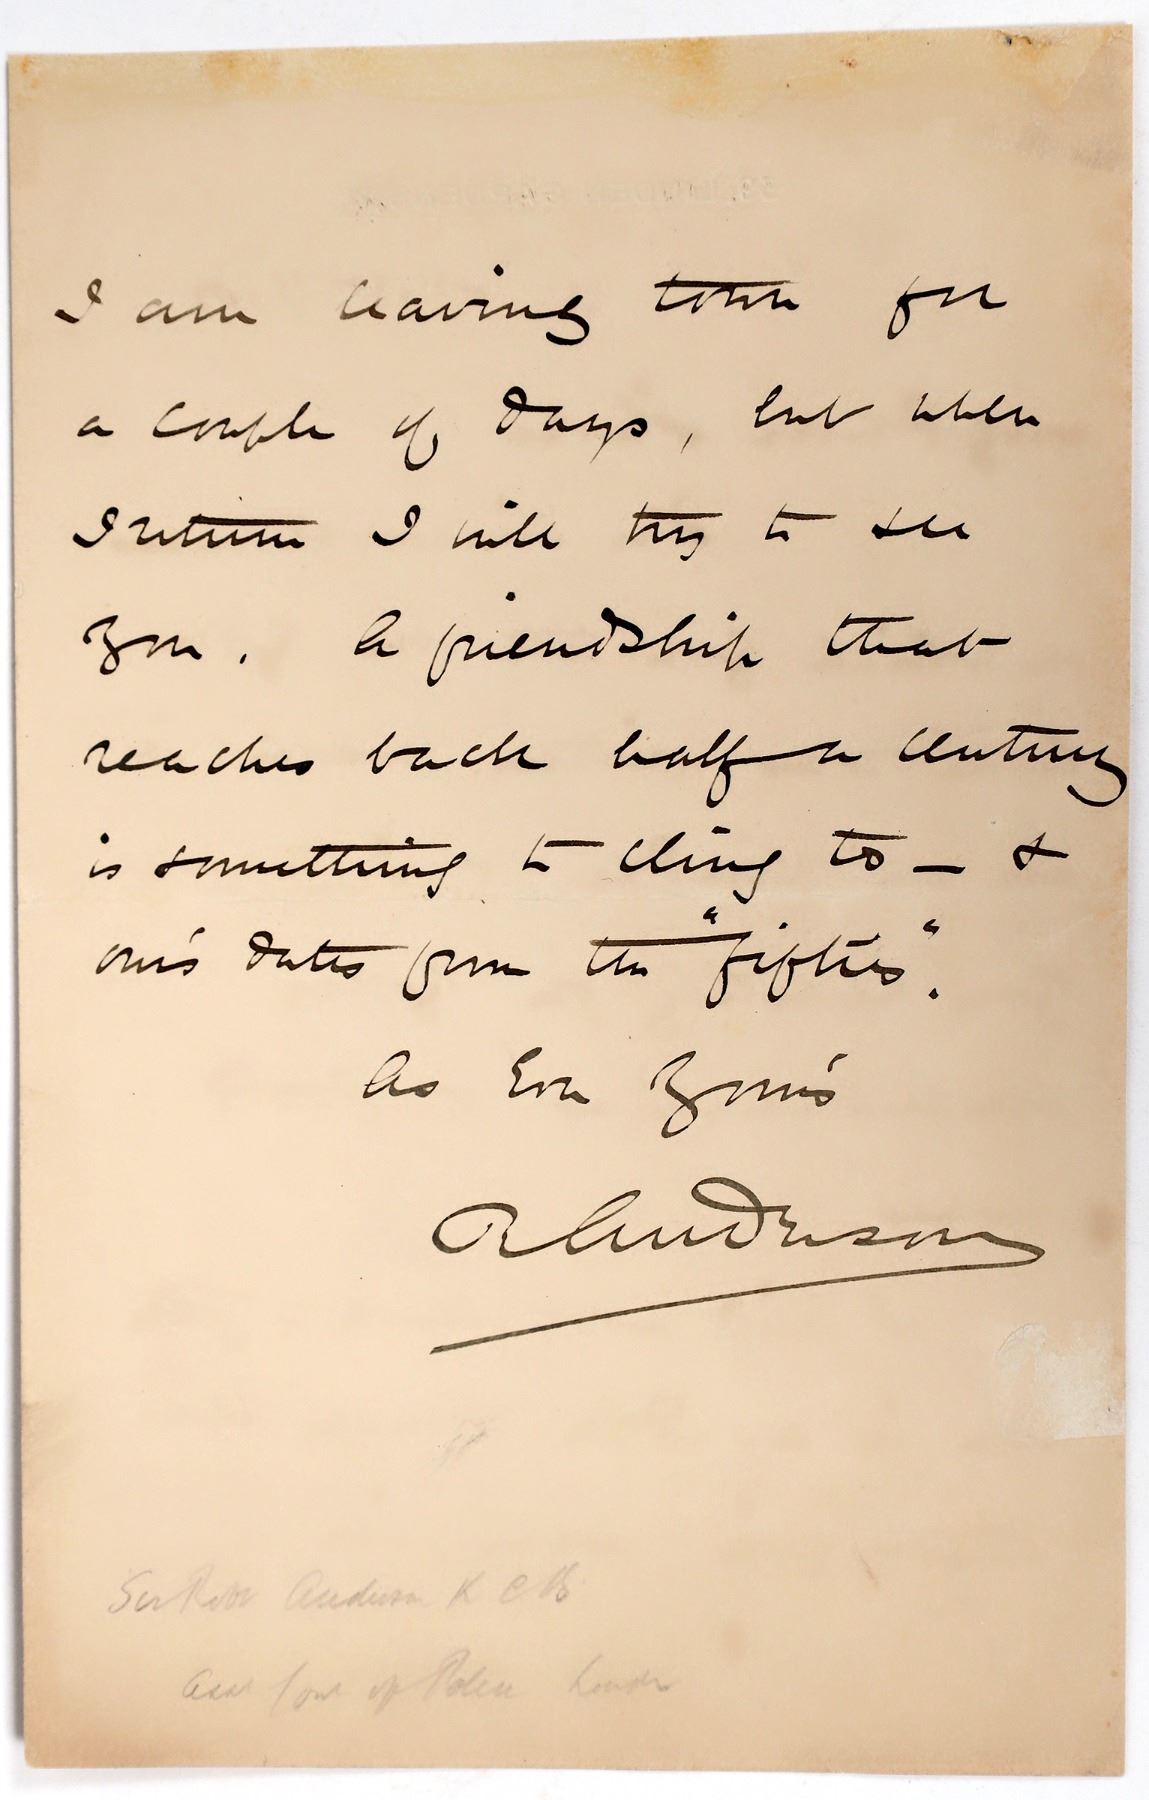 I am leaving town for
a couple of days, but when
I return I will try to see
you. A friendship that
reaches back half a century
is something to cling to — &
ours dates from the "fifties".
As Ever Yours
R Anderson
Sir Robt Anderson K C B
Asst Com of Police London